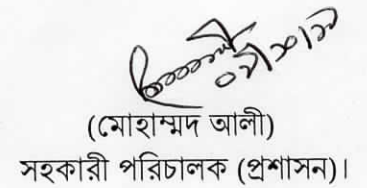 (মোহাম্মদ আলী)
সহকারী পরিচালক (প্রশাসন)।